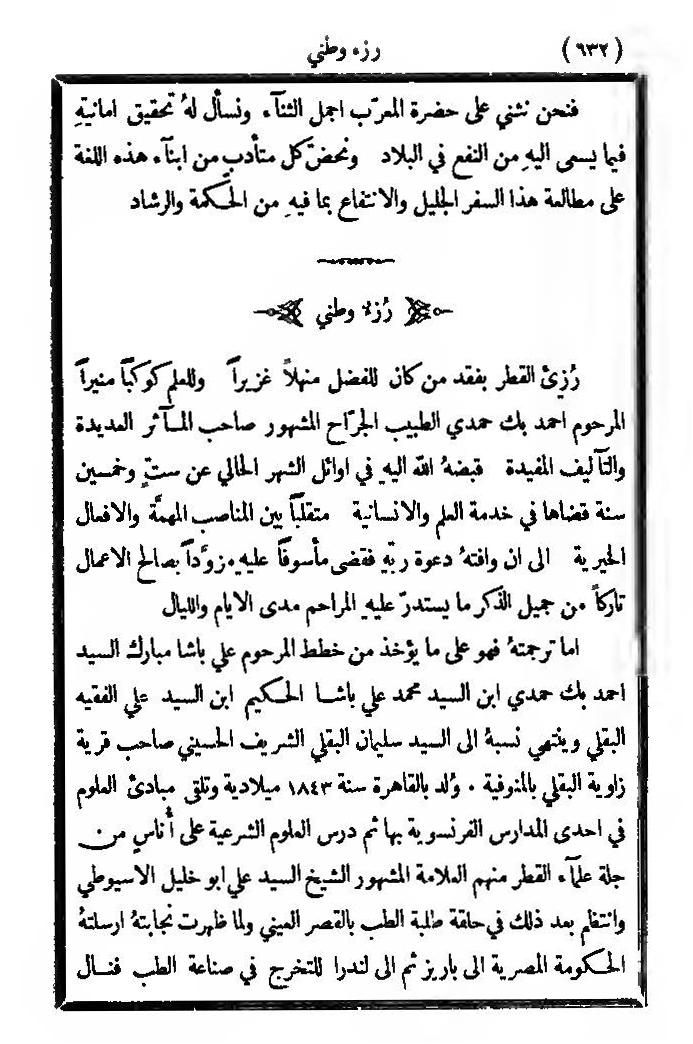 (٦٣٢) رزء وطني
فنحن نثني على حضرة المعرّب اجمل الثنآء ونسأل لهُ تحقيق امانيّهِ
فيما يسعى اليهِ من النفع في البلاد ونحضّ كل متأدب من ابنآء هذه اللغة
على مطالعة هذا السفر الجليل والانتفاع بما فيهِ من الحكمة والرشاد
رُزء وطني
رُزئ القطر بفقد من كان للفضل منهلاً غزيراً وللعلم كوكباً منيراً
المرحوم احمد بك حمدي الطبيب الجرّاح المشهور صاحب المآثر العديدة
والتآليف المفيدة قبضهُ الله اليهِ في اوائل الشهر الحالي عن ستٍ وخمسين
سنة قضاها في خدمة العلم والانسانية متقلباً بين المناصب المهمّة والافعال
الخيرية الى ان وافتهُ دعوة ربّهِ فقضى مأسوفاً عليهِ مزوَّداً بصالح الاعمال
تاركاً من جميل الذكر ما يستدرّ عليهِ المراحم مدى الايام والليال
اما ترجمتهُ فهو على ما يؤخذ من خطط المرحوم علي باشا مبارك السيد
احمد بك حمدي ابن السيد محمد علي باشا الحكيم ابن السيد علي الفقيه
البقلي وينتهي نسبهُ الى السيد سليمان البقلي الشريف الحسيني صاحب قرية
زاوية البقلي بالمنوفية . وُلد بالقاهرة سنة ١٨٤٣ ميلادية وتلقى مبادئ العلوم
في احدى المدارس الفرنسوية بها ثم درس العلوم الشرعية على أُناسٍ من
جلة علمآء القطر منهم العلامة المشهور الشيخ السيد علي ابو خليل الاسيوطي
وانتظم بعد ذلك في حلقة طلبة الطب بالقصر العيني ولما ظهرت نجابتهُ ارسلتهُ
الحكومة المصرية الى باريز ثم الى لندرا للتخرج في صناعة الطب فنال